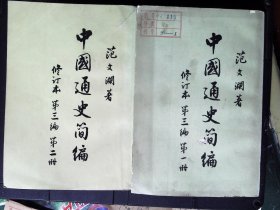 范文澜著
中國通史简編
修订本 第三編 第二册
范文澜著
中國通史简編
修订本 第三編 第一册